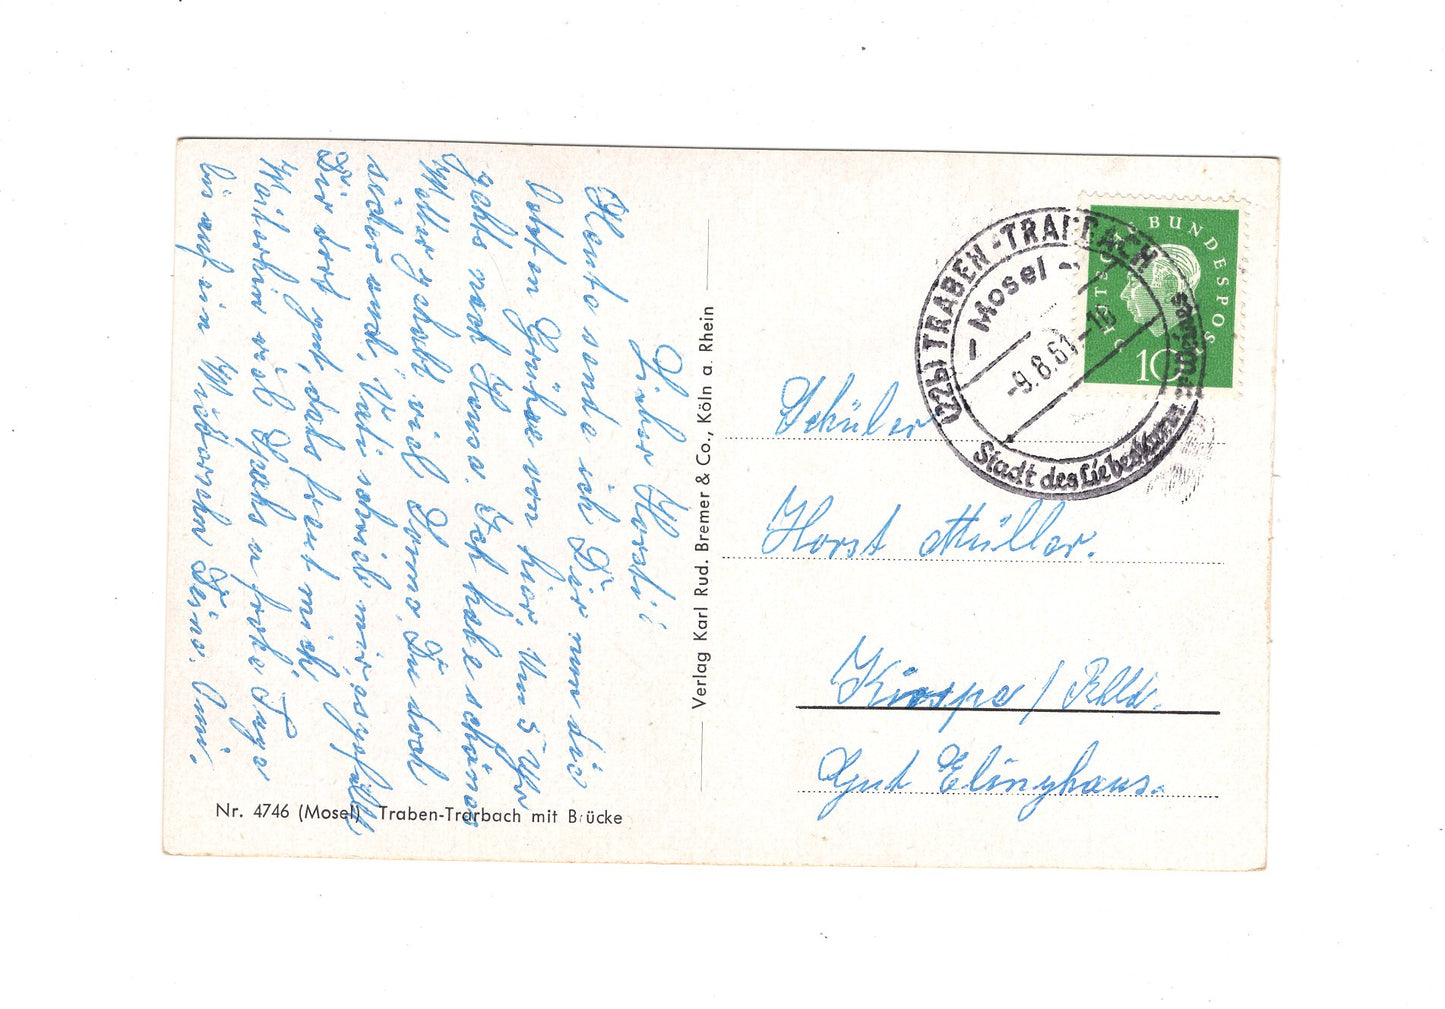 Lieber Horst!
Heute sende ich Dir nun die
letzten Grüße von hier. Um 5 Uhr
gehts nach Hause. Ich habe schönes
Wetter gehabt, viel Sonne, Du doch
sicher auch, Vati schrieb mir, es gefällt
Dir dort gut, das freut mich,
Weiterhin viel Spaß u. frohe Tage
bis auf ein Wiedersehn Deine Omi.
Nr. 4746 (Mosel) Traben-Trarbach mit Brücke
Verlag Karl Rud. Bremer & Co., Köln a. Rhein
(22b) TRABEN-TRARBACH
- Mosel -
-9.8.61.-18
Stadt des Liebeskummer
DEUTSCHE BUNDESPOST
10
Schüler
Horst Müller.
/ Rhld.
Gut Elinghaus.